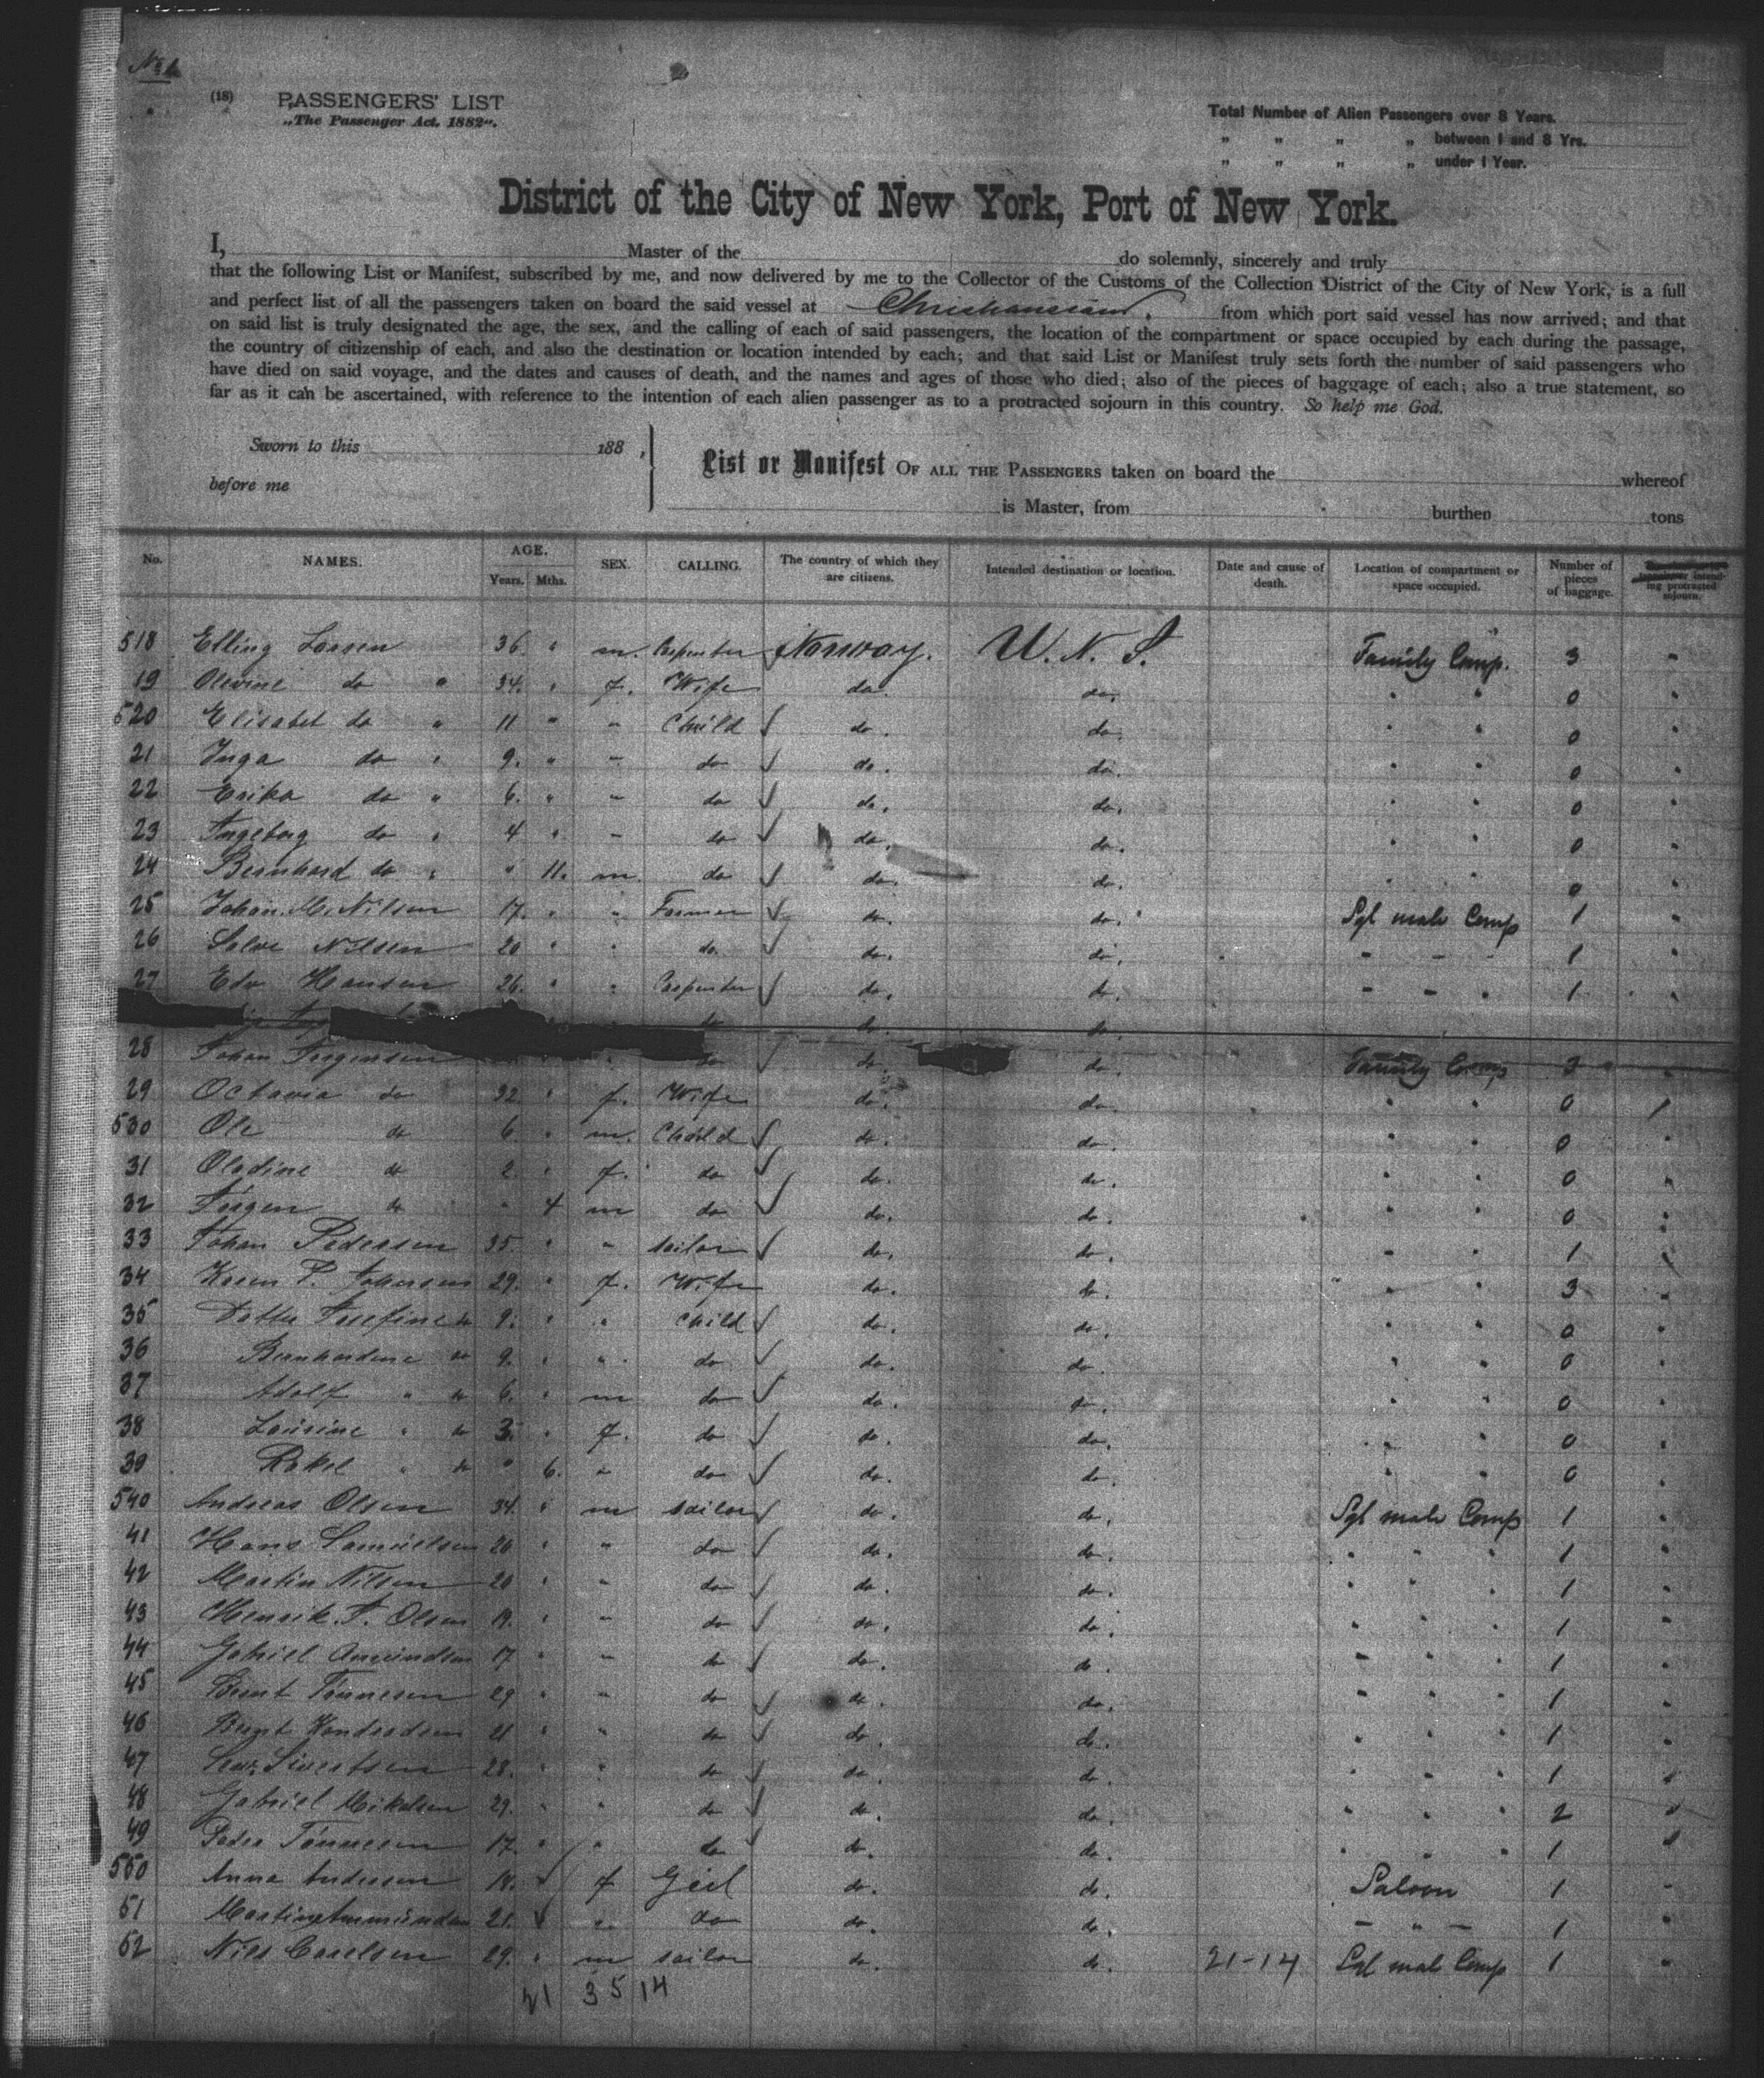 (18) PASSENGERS' LIST
„The Passenger Act, 1882".
Total Number of Alien Passengers over 8 Years.
„ „ „ „ between 1 and 8 Yrs.
„ „ „ „ under 1 Year.
District of the City of New York, Port of New York.
I, Master of the do solemnly, sincerely and truly
that the following List or Manifest, subscribed by me, and now delivered by me to the Collector of the Customs of the Collection District of the City of New York, is a full
and perfect list of all the passengers taken on board the said vessel at Christiansand. from which port said vessel has now arrived; and that
on said list is truly designated the age, the sex, and the calling of each of said passengers, the location of the compartment or space occupied by each during the passage,
the country of citizenship of each, and also the destination or location intended by each; and that said List or Manifest truly sets forth the number of said passengers who
have died on said voyage, and the dates and causes of death, and the names and ages of those who died; also of the pieces of baggage of each; also a true statement, so
far as it can be ascertained, with reference to the intention of each alien passenger as to a protracted sojourn in this country. So help me God.
Sworn to this 188 ,
before me
List or Manifest OF ALL THE PASSENGERS taken on board the whereof
is Master, from burthen tons
No. NAMES. AGE. Years. Mths. SEX. CALLING. The country of which they are citizens. Intended destination or location. Date and cause of death. Location of compartment or space occupied. Number of pieces of baggage. intending protracted sojourn.
518 Elling Larsen 36 " m. Carpenter Norway. U. N. S. Family Comp. 3 "
19 Olevine do " 34. " f. Wife do. do. " " 0 "
520 Elisabet do " 11 " " Child do. do. " " 0 "
21 Inga do " 9. " " do do. do. " " 0 "
22 Erika do " 6. " " do do. do. " " 0 "
23 Ingeborg do " 4 " " do do. do. " " 0 "
24 Bernhard do " " 11. m. do do. do. " " 0 "
25 Johan. M. Nilsen 17. " " Farmer do. do. Sgl male Comp 1 "
26 Salve Nilsen 20 " " do. do. do. " " " 1 "
27 Edv Hansen 26. " " Carpenter do. do. " " " 1 "
28 Johan Jorgensen " do do. do. Family Comp 3 "
29 Octavia do 32 " f. Wife do. do. " " 0
530 Ole do 6 " m. Child do. do. " " 0 "
31 Oladine do 2. " f. do do. do. " " 0 "
32 Jörgen do " 4 m do do. do. " " 0 "
33 Johan Pedersen 35. " " sailor do. do. " " 1
34 Karen P. Johansen 29. " f. Wife do. do. " " 3 "
35 Josefine do 9. " " Child do. do. " " 0 "
36 Bernhardine do 9. " " do do. do. " " 0 "
37 Adolf " do 6. " m do do. do. " " 0 "
38 Lourine " do 3. " f. do do. do. " " 0 "
39 Rakel " do " 6. " do do. do. " " 0 "
540 Andreas Olsen 34. " m sailor do. do. Sgl male Comp 1 "
41 Hans Samuelsen 20 " " do do. do. " " " 1 "
42 Martin Nilsen 20 " " do do. do. " " " 1 "
43 Henrik. J. Olsen 19. " " do do. do. " " " 1 "
44 Gabriel Amundsen 17 " " do do. do. " " " 1 "
45 Bernt Tönnesen 29 " " do do. do. " " " 1 "
46 Bernt 21 " " do do. do. " " " 1 "
47 Sivertsen 28. " " do do. do. " " " 1 "
48 Gabriel Mikalsen 29. " " do do. do. " " " 2 "
49 Peder Tönnesen 17. " " do do. do. " " " 1 "
550 Anna Andersen 18. f Girl do. do. Saloon 1 "
51 21. " do do. do. " 1 "
52 Nils Carelsen 29. " m sailor do. do. 21-14 Sgl male Comp 1 "
21 35 14